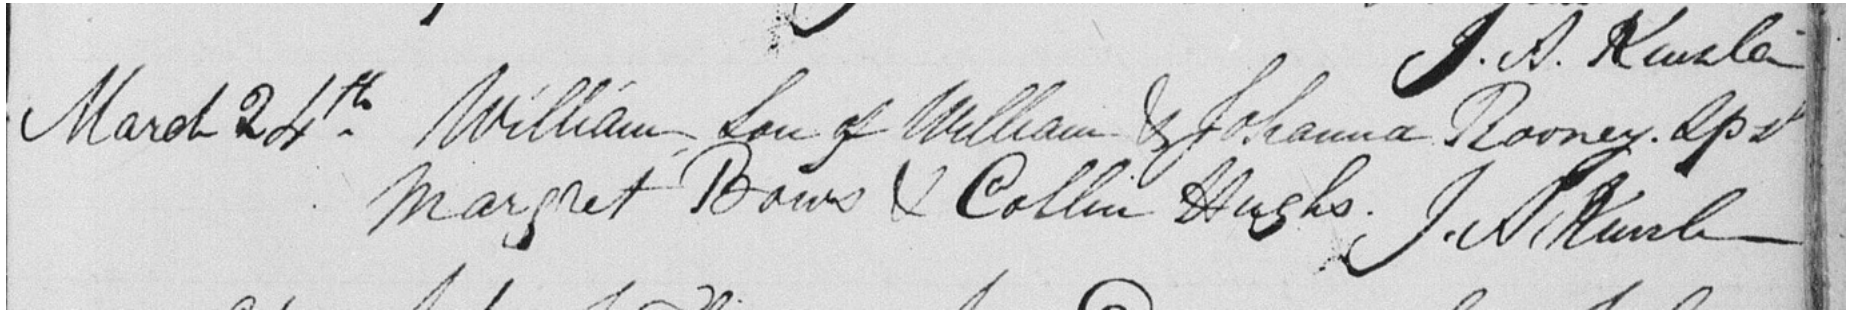 J. A. Kinsla
March 24th. William, Son of William & Johanna Rooney. Sps
Margret Bows & Collin Hughs. J. A. Kinsla